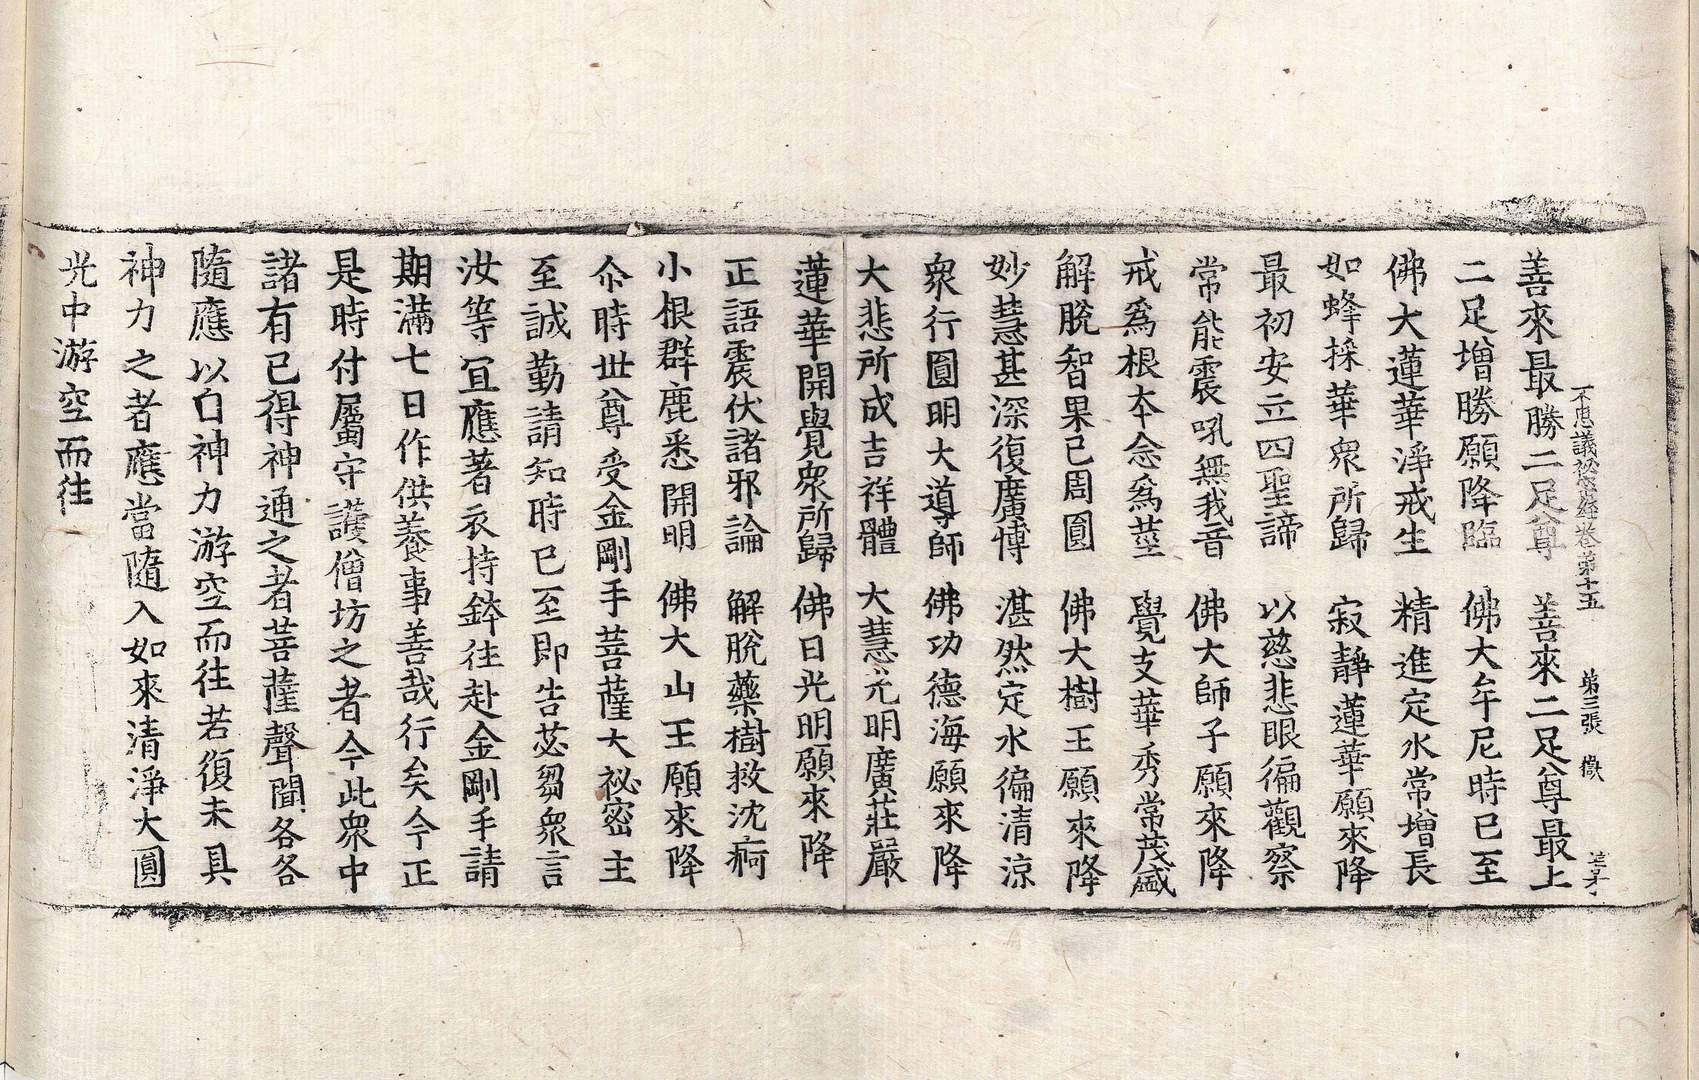 不思議秘密經卷第十五 第三張 徵
善來最勝二足尊 善來二足尊最上
二足增勝願降臨 佛大牟尼時已至
佛大蓮華淨戒生 精進定水常增長
如蜂採華衆所歸 寂靜蓮華願來降
最初安立四聖諦 以慈悲眼徧觀察
常能震吼無我音 佛大師子願來降
戒爲根本念爲莖 覺支華秀常茂盛
解脫智果已周圓 佛大樹王願來降
妙慧甚深復廣博 湛然定水徧清涼
衆行圓明大導師 佛功德海願來降
大悲所成吉祥體 大慧光明廣莊嚴
蓮華開覺衆所歸 佛日光明願來降
正語震伏諸邪論 解脫藥樹救沈痾
小根群鹿悉開明 佛大山王願來降
尒時世尊受金剛手菩薩大祕密主
至誠勤請知時已至即告苾芻衆言
汝等宜應著衣持鉢往赴金剛手請
期滿七日作供養事善哉行矣今正
是時付屬守護僧坊之者今此衆中
諸有已得神通之者菩薩聲聞各各
隨應以自神力游空而往若復未具
神力之者應當隨入如來清淨大圓
光中游空而往